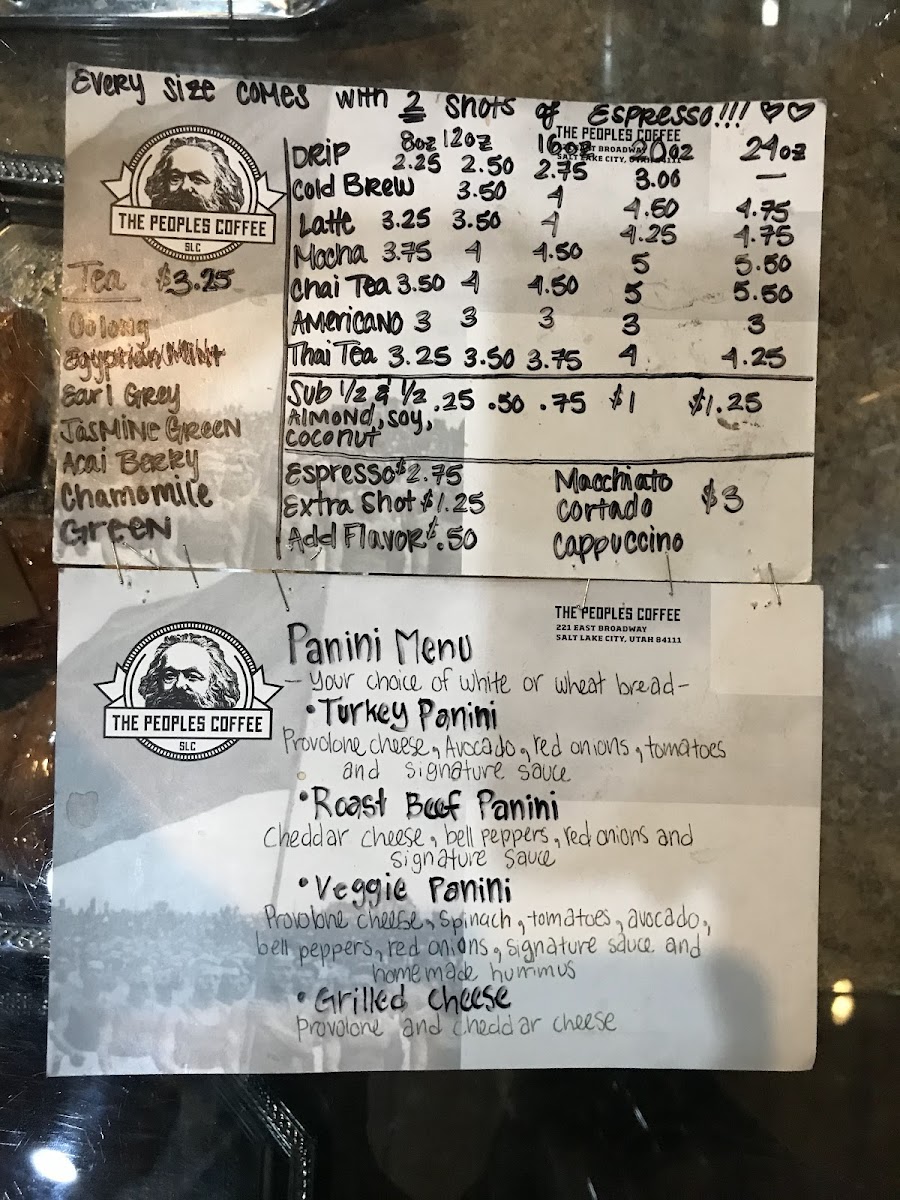 Every size comes with 2 shots of Espresso!!! ♡♡
THE PEOPLES COFFEE
EAST BROADWAY
SALT LAKE CITY, UTAH 84111
8oz 12oz 16oz 20oz 24oz
Drip 2.25 2.50 2.75 3.00 —
Cold Brew 3.50 4 4.50 4.75
Latte 3.25 3.50 4 4.25 4.75
Mocha 3.75 4 4.50 5 5.50
Chai Tea 3.50 4 4.50 5 5.50
Americano 3 3 3 3 3
Thai Tea 3.25 3.50 3.75 4 4.25
Sub 1/2 & 1/2 .25 .50 .75 $1 $1.25
Almond, soy,
coconut
Espresso $2.75
Extra Shot $1.25
Add Flavor $.50
Macchiato
Cortado $3
Cappuccino
THE PEOPLES COFFEE
SLC
Tea $3.25
Oolong
Egyptian Mint
Earl Grey
Jasmine Green
Acai Berry
Chamomile
Green
THE PEOPLES COFFEE
221 EAST BROADWAY
SALT LAKE CITY, UTAH 84111
THE PEOPLES COFFEE
SLC
Panini Menu
- Your choice of white or wheat bread-
• Turkey Panini
Provolone cheese, Avocado, red onions, tomatoes
and signature sauce
• Roast Beef Panini
Cheddar cheese, bell peppers, red onions and
signature sauce
• Veggie Panini
Provolone cheese, spinach, tomatoes, avocado,
bell peppers, red onions, signature sauce and
homemade hummus
• Grilled cheese
Provolone and cheddar cheese